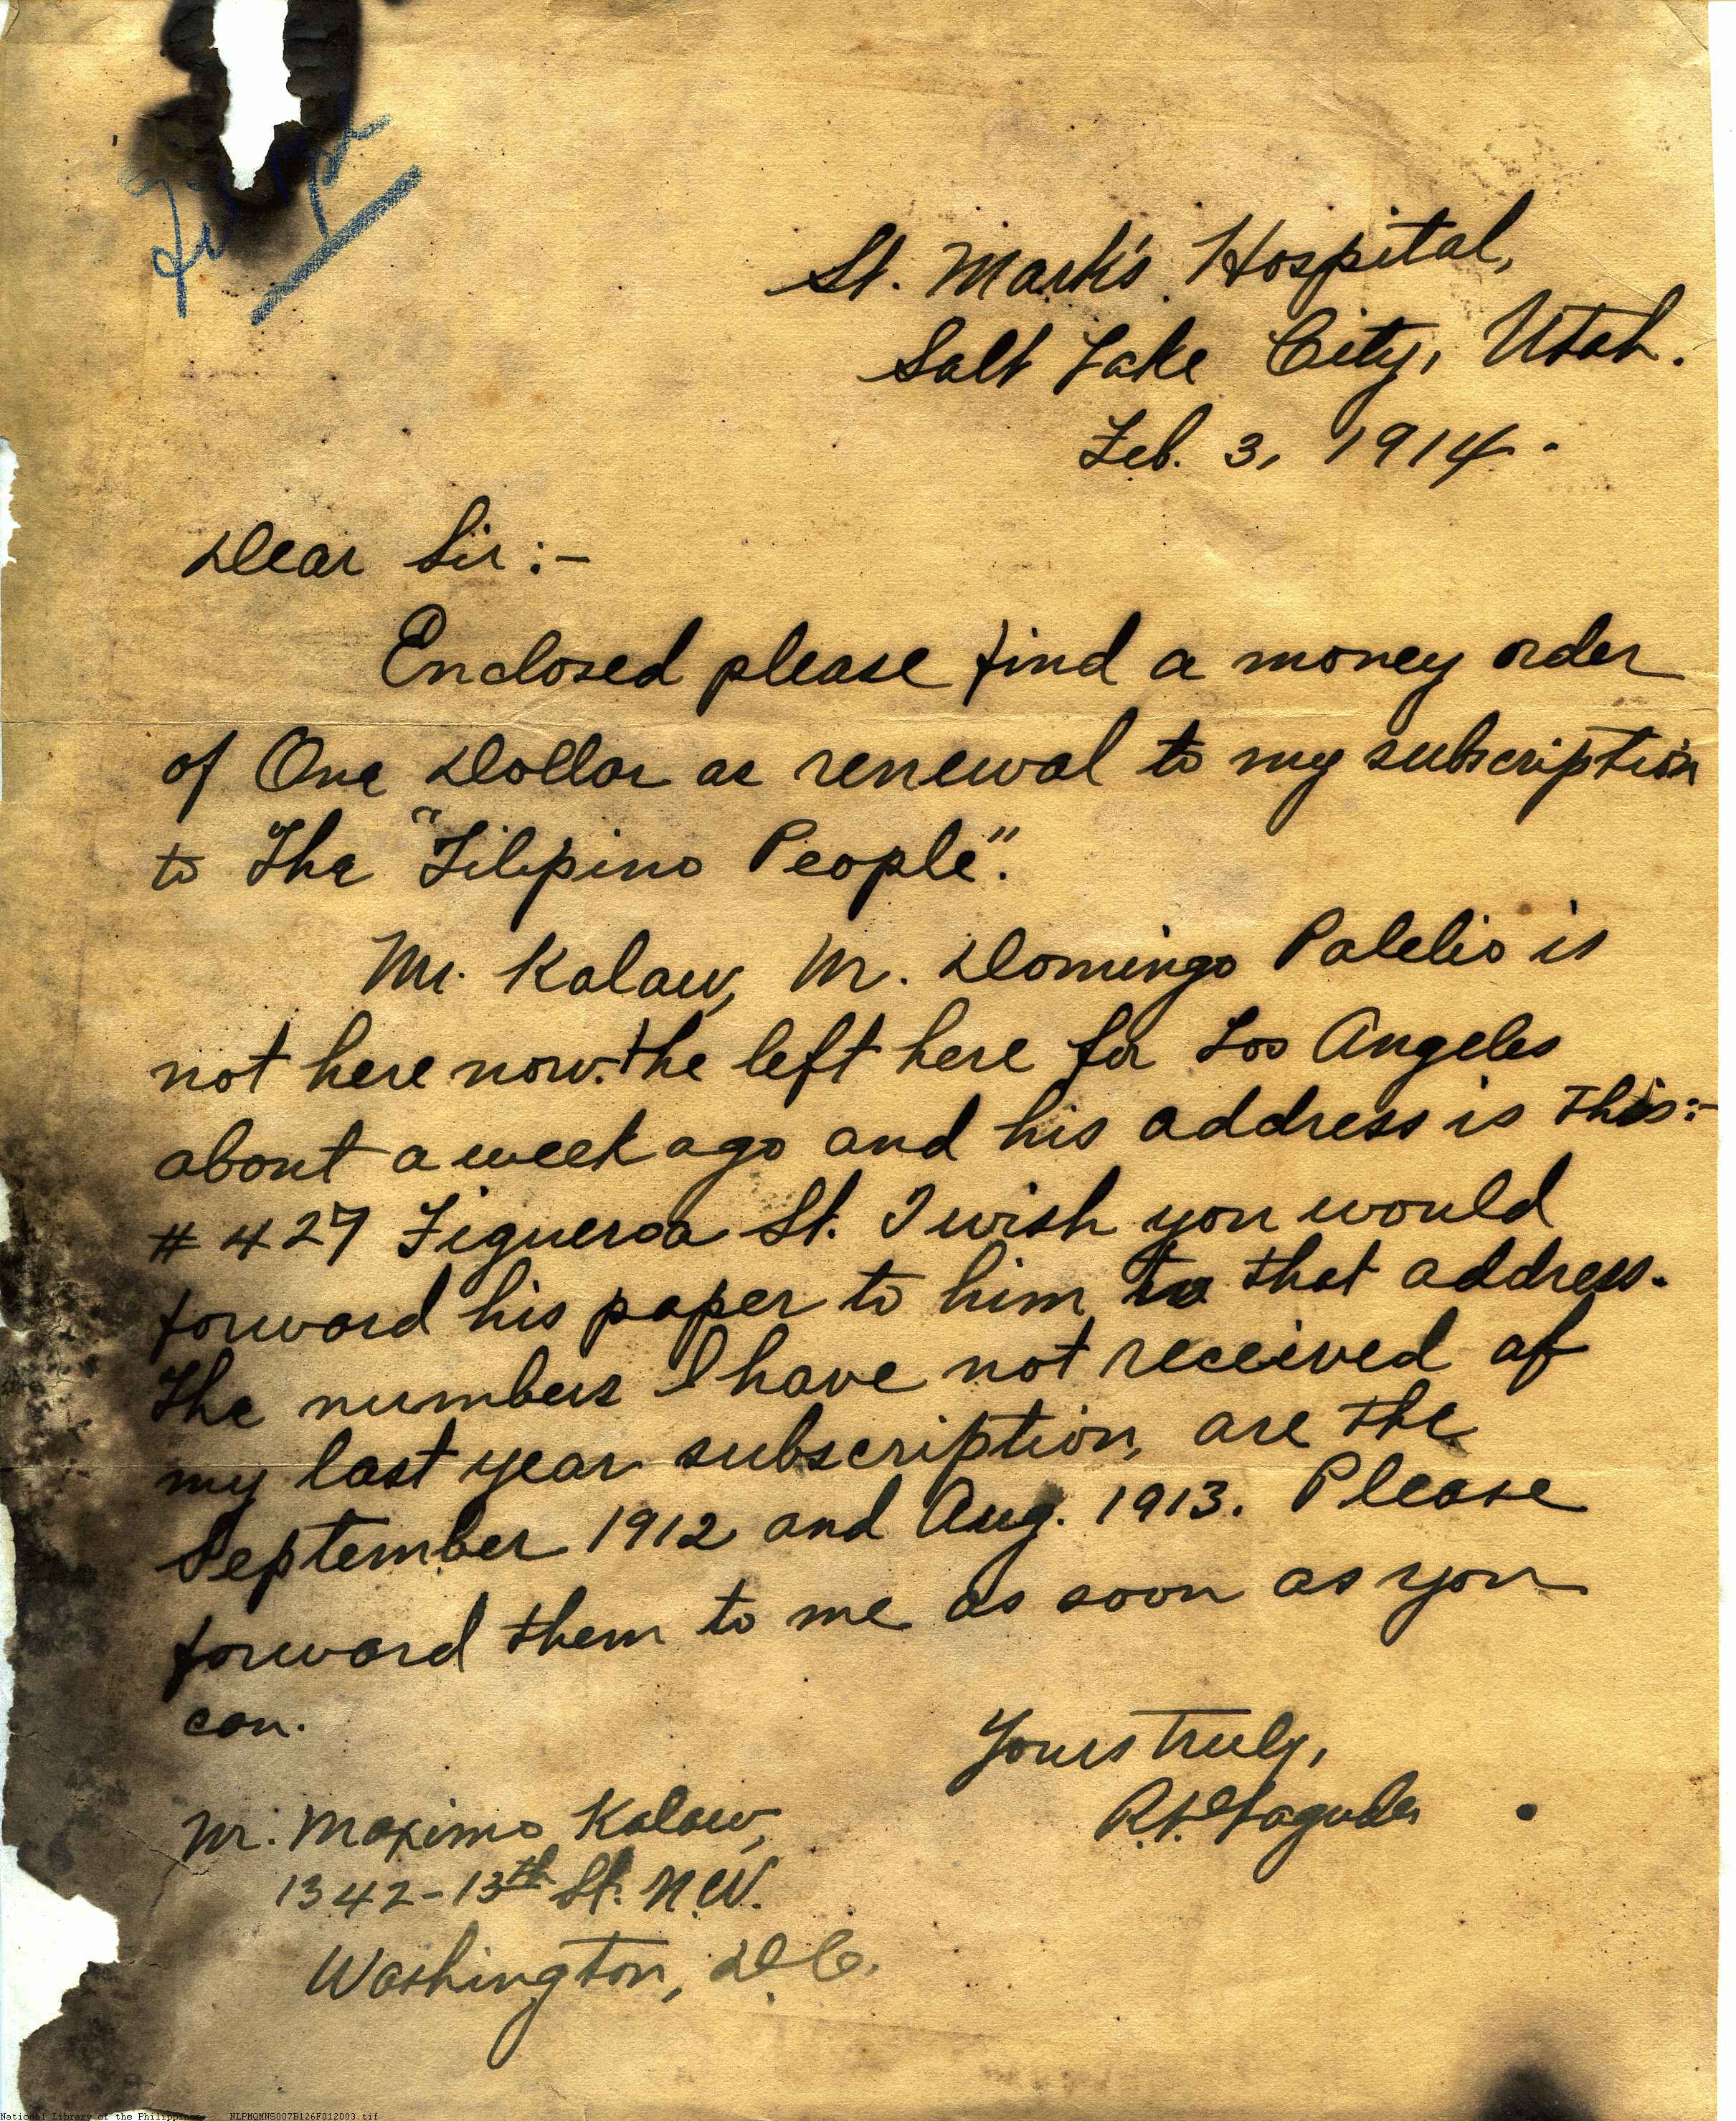 St. Mark's Hospital,
Salt Lake City, Utah.
Feb. 3, 1914.
Dear Sir:-
Enclosed please find a money order
of One Dollar as renewal to my subscription
to The "Filipino People".
Mr. Kalaw, Mr. Domingo Palelio is
not here now. he left here for Los Angeles
about a week ago and his address is this:-
# 427 Figueroa St. I wish you would
forward his paper to him to that address.
The numbers I have not received of
my last year subscription, are the
September 1912 and Aug. 1913. Please
forward them to me as soon as you
can.
Yours truly,
Mr. Maximo Kalaw,
1342-13th St. N.W.
Washington, D.C.
National Library of the Philippines NLPMQMNS007B126F012003.tif